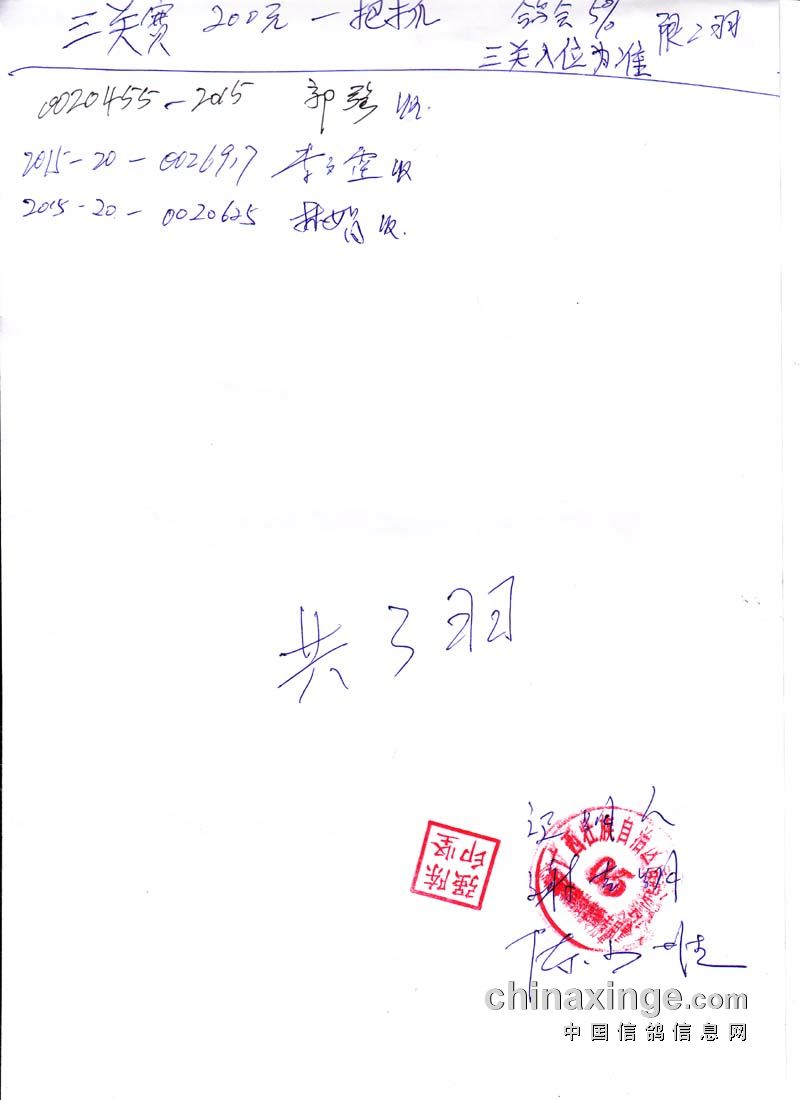 三关赛 200元 一把抓 鸽会5% 限2羽
三关入位为准
0020455-2015 郭强 收.
2015-20-0026917 李 空 收
2015-20-0020625 林娟 收.
共3羽
证明人
广西壮族自治
强陈
印坚
陈
chinaxinge.com
中国信鸽信息网